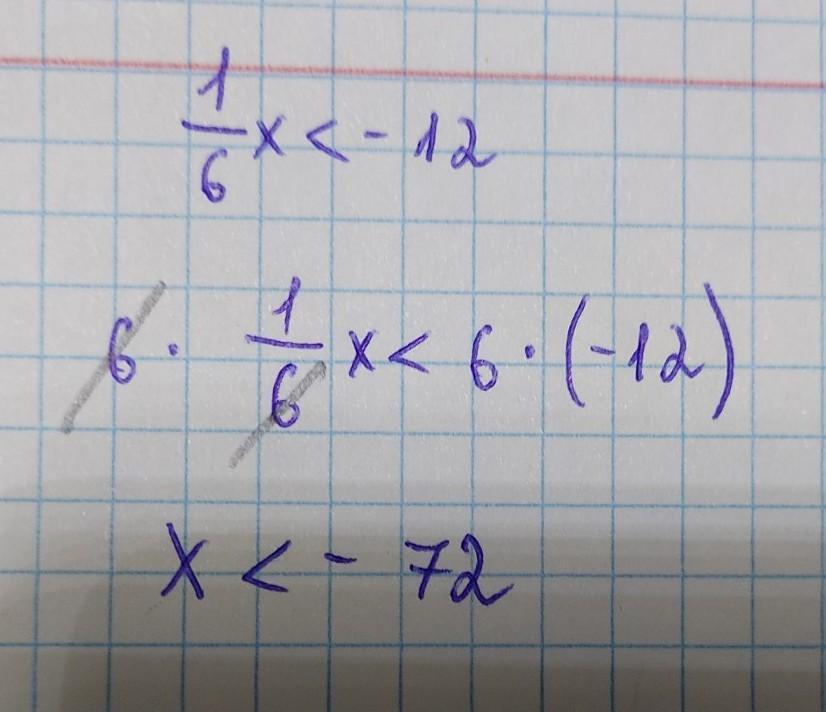 1/6 x < - 12
6 · 1/6 x < 6 · (-12)
x < - 72